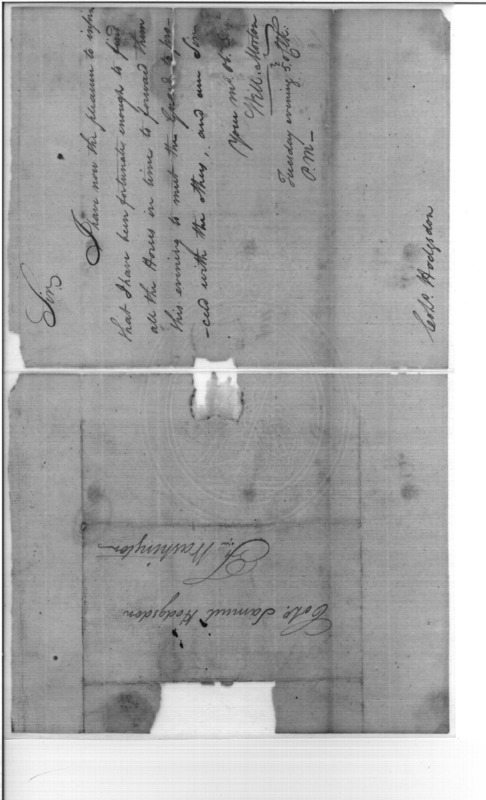 Sir
I have now the pleasure to infor
that I have been fortunate enough to find
all the Horses in time to forward them
this evening to meet the to pro-
-ceed with the others, and am Sir
Your
Will. Morton
Tuesday evening 5.
P.M—
Colo. Hodgsdon
Colo. Samuel Hodgsdon
Ft. Washington